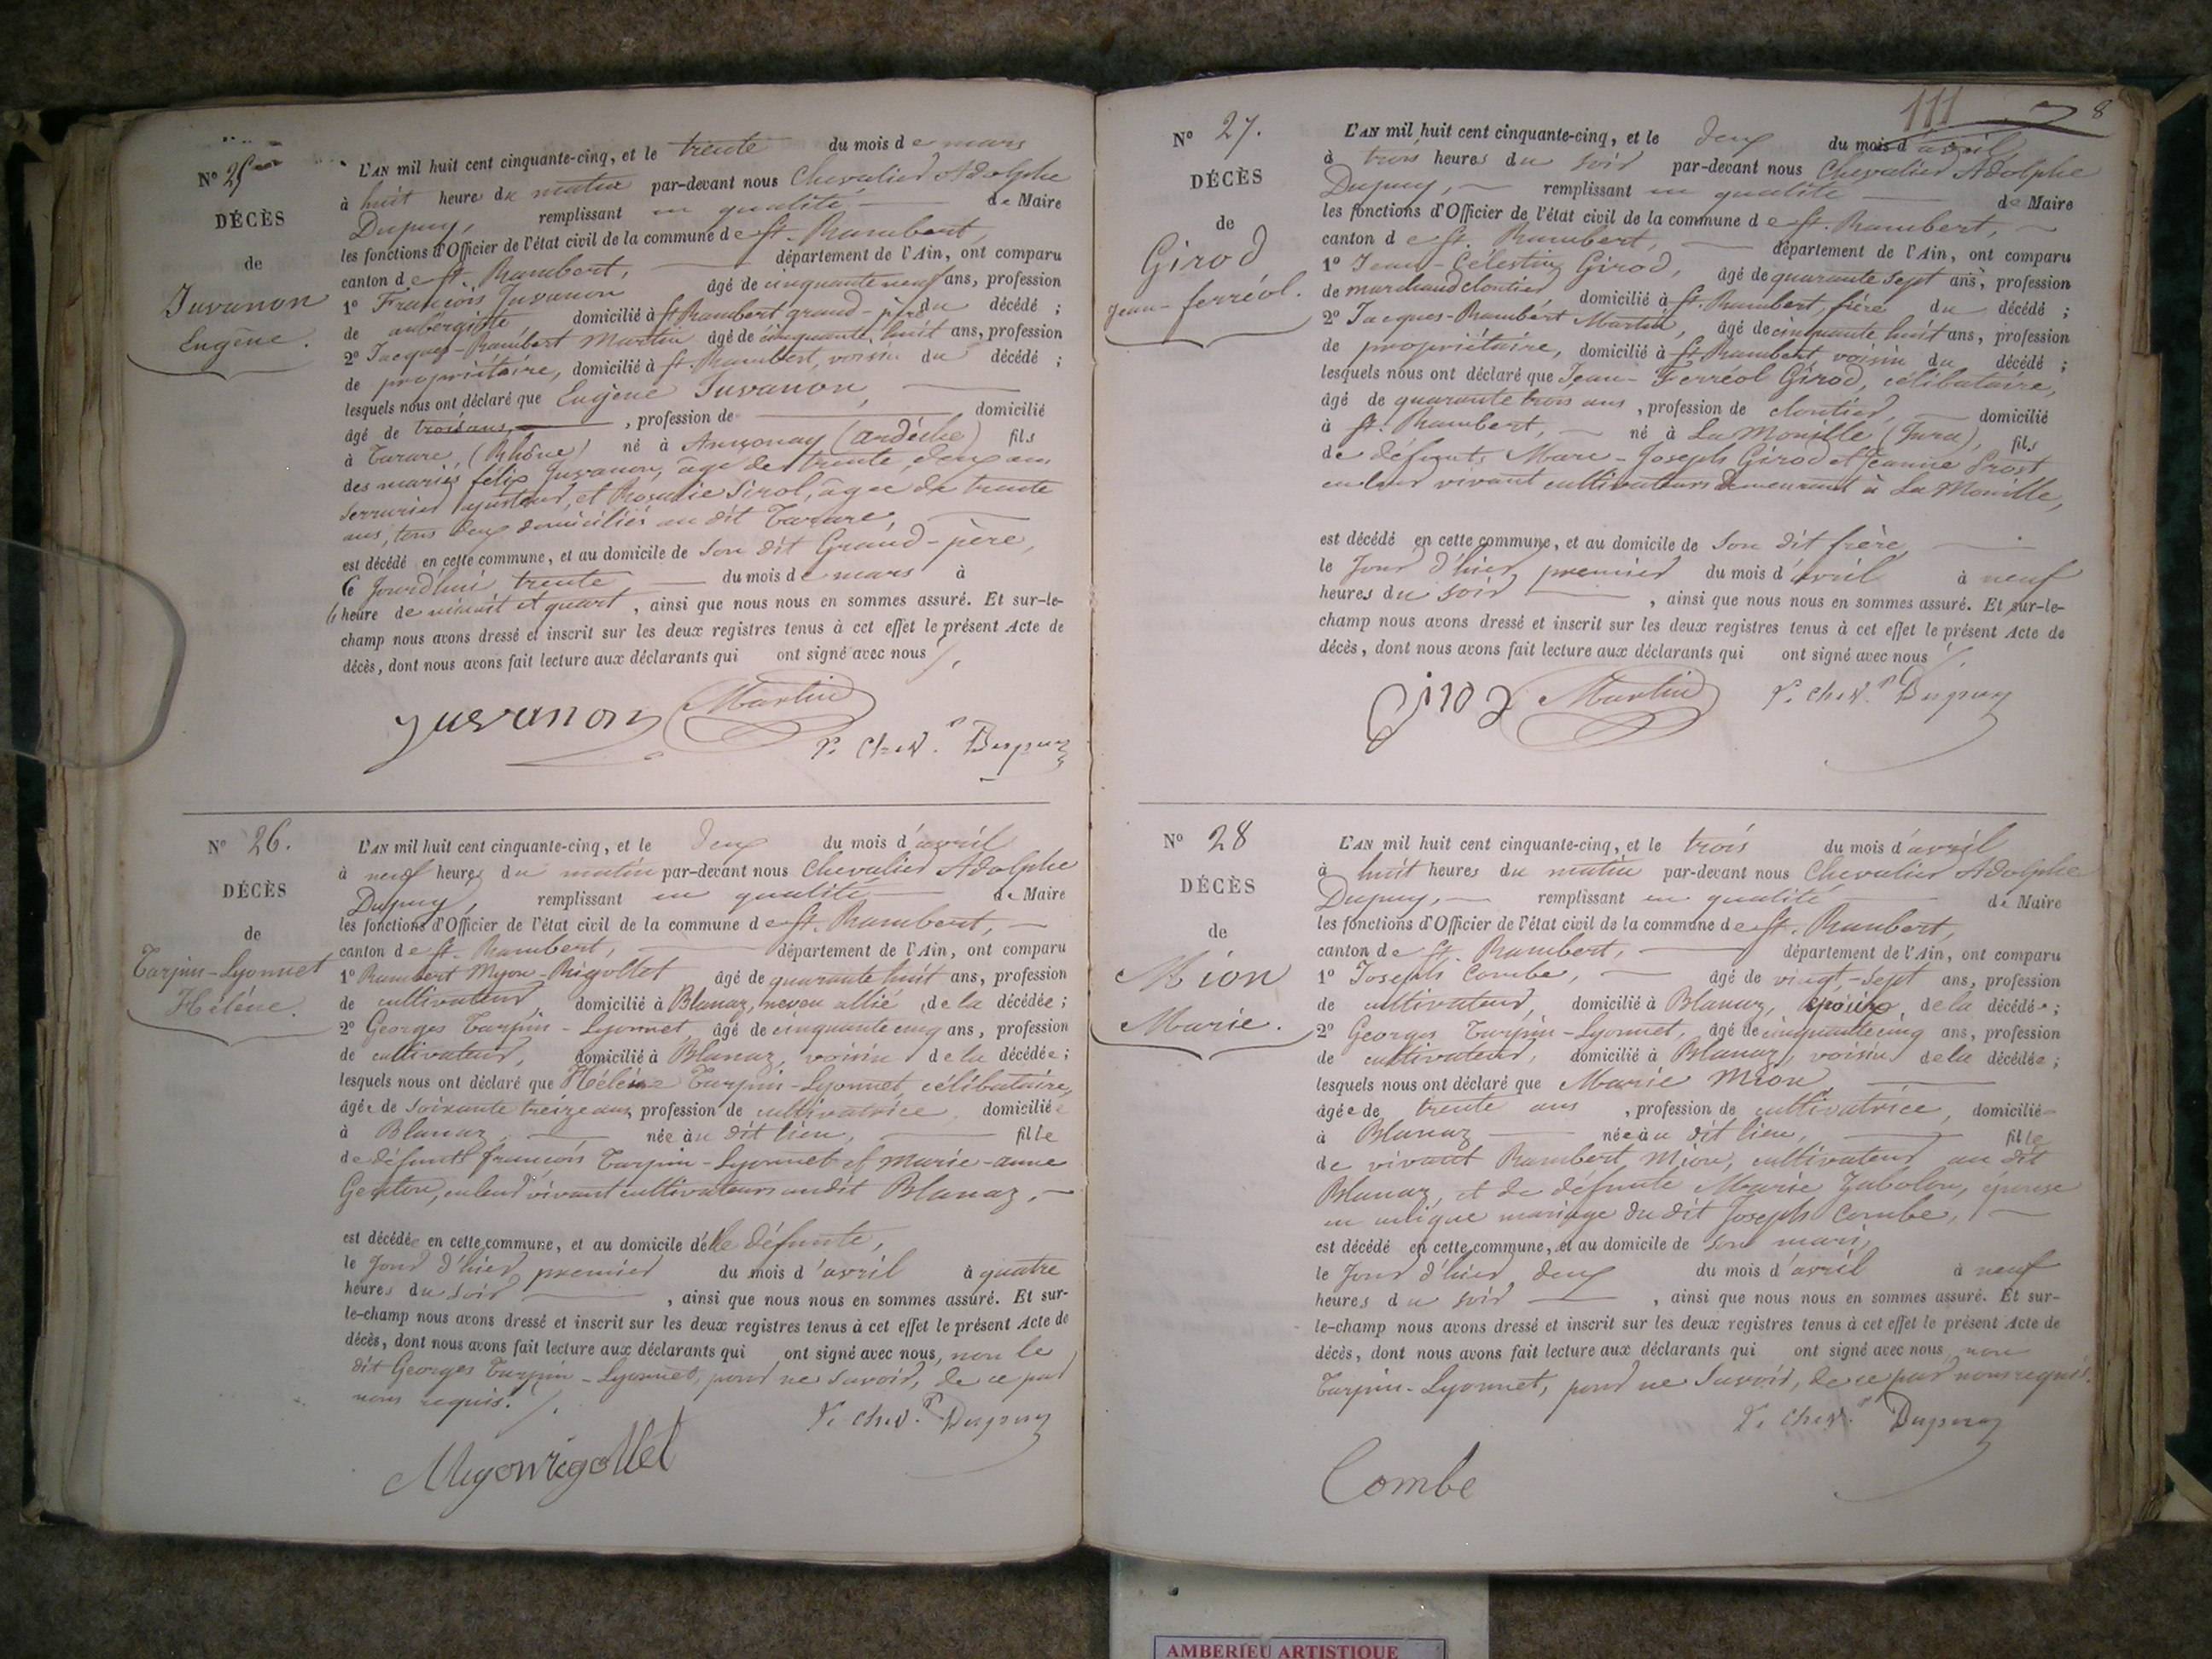 Nº 25
DÉCÈS
de
Juvanon
Eugène.
L'AN mil huit cent cinquante-cinq, et le trente du mois de mars
à huit heure du matin par-devant nous Chevalier Adolphe
Dupuy, remplissant en qualité de Maire
les fonctions d'Officier de l'état civil de la commune de St. Rambert,
canton de St. Rambert, département de l'Ain, ont comparu
1º François Juvanon âgé de cinquante neuf ans, profession
de aubergiste domicilié à St Rambert grand-père du décédé ;
2º Jacques-Rambert Martin âgé de cinquante huit ans, profession
de propriétaire, domicilié à St. Rambert, voisin du décédé ;
lesquels nous ont déclaré que Eugène Juvanon,
âgé de trois ans, , profession de domicilié
à Tarare, (Rhône) né à Annonay (ardèche) fils
des mariés félix Juvanon, âgé de trente deux ans
serrurier ajusteur, et Rosalie Sirol, âgée de trente
ans, tous deux domiciliés au dit Tarare,
est décédé en cette commune, et au domicile de son dit Grand-père,
Ce jourd'hui trente du mois de mars à
heure de minuit et quart, ainsi que nous nous en sommes assuré. Et sur-le-
champ nous avons dressé et inscrit sur les deux registres tenus à cet effet le présent Acte de
décès, dont nous avons fait lecture aux déclarants qui ont signé avec nous /.
Juvanon Martin
Dupuy
Nº 26.
DÉCÈS
de
Turpin-Lyonnet
Hélène.
L'AN mil huit cent cinquante-cinq, et le deux du mois d'avril
à neuf heures du matin par-devant nous Chevalier Adolphe
Dupuy, remplissant en qualité de Maire
les fonctions d'Officier de l'état civil de la commune de St. Rambert,
canton de St. Rambert, département de l'Ain, ont comparu
1º Rambert Myon-Rigollet âgé de quarante huit ans, profession
de cultivateur domicilié à Blanaz, neveu allié de la décédée ;
2º Georges Turpin-Lyonnet âgé de cinquante cinq ans, profession
de cultivateur, domicilié à Blanaz, voisin de la décédée ;
lesquels nous ont déclaré que Hélène Turpin-Lyonnet, célibataire,
âgée de soixante treize ans, profession de cultivatrice, domiciliée
à Blanaz, née au dit lieu, fille
de défunts françois Turpin-Lyonnet et Marie-anne
Genton, en leur vivant cultivateurs audit Blanaz,
est décédée en cette commune, et au domicile de la défunte,
le jour d'hier premier du mois d'avril à quatre
heures du soir, ainsi que nous nous en sommes assuré. Et sur-
le-champ nous avons dressé et inscrit sur les deux registres tenus à cet effet le présent Acte de
décès, dont nous avons fait lecture aux déclarants qui ont signé avec nous, non le
dit Georges Turpin-Lyonnet, pour ne savoir, de ce par
nous requis. /.
Dupuy
Myonrigollet
111 8
Nº 27.
DÉCÈS
de
Girod
jean-ferréol.
L'AN mil huit cent cinquante-cinq, et le deux du mois d'avril
à trois heures du soir par-devant nous Chevalier Adolphe
Dupuy, remplissant en qualité de Maire
les fonctions d'Officier de l'état civil de la commune de St. Rambert,
canton de St. Rambert, département de l'Ain, ont comparu
1º Jean-Célestin Girod, âgé de quarante sept ans, profession
de marchand cloutier domicilié à St. Rambert, frère du décédé ;
2º Jacques-Rambert Martin, âgé de cinquante huit ans, profession
de propriétaire, domicilié à St Rambert voisin du décédé ;
lesquels nous ont déclaré que Jean-Ferréol Girod, célibataire,
âgé de quarante trois ans, profession de cloutier, domicilié
à St. Rambert, né à La Mouille (Jura), fils
de défunts Marc-Joseph Girod et Jeanne Prost
en leur vivant cultivateurs demeurant à La Mouille,
est décédé en cette commune, et au domicile de son dit frère
le jour d'hier premier du mois d'avril à neuf
heures du soir, ainsi que nous nous en sommes assuré. Et sur-le-
champ nous avons dressé et inscrit sur les deux registres tenus à cet effet le présent Acte de
décès, dont nous avons fait lecture aux déclarants qui ont signé avec nous /.
Girod Martin Dupuy
Nº 28
DÉCÈS
de
Mion
Marie.
L'AN mil huit cent cinquante-cinq, et le trois du mois d'avril
à huit heures du matin par-devant nous Chevalier Adolphe
Dupuy, remplissant en qualité de Maire
les fonctions d'Officier de l'état civil de la commune de St. Rambert,
canton de St. Rambert, département de l'Ain, ont comparu
1º Joseph Combe, âgé de vingt-sept ans, profession
de cultivateur, domicilié à Blanaz, époux de la décédée ;
2º Georges Turpin-Lyonnet, âgé de cinquante cinq ans, profession
de cultivateur, domicilié à Blanaz, voisin de la décédée ;
lesquels nous ont déclaré que Marie Mion,
âgée de trente ans, profession de cultivatrice, domicilié
à Blanaz née au dit lieu, fille
de vivant Rambert Mion, cultivateur au dit
Blanaz, et de défunte Marie Jabolon, épouse
en unique mariage du dit Joseph Combe,
est décédé en cette commune, et au domicile de son mari,
le jour d'hier deux du mois d'avril à neuf
heures du soir, ainsi que nous nous en sommes assuré. Et sur-
le-champ nous avons dressé et inscrit sur les deux registres tenus à cet effet le présent Acte de
décès, dont nous avons fait lecture aux déclarants qui ont signé avec nous non
Turpin-Lyonnet, pour ne savoir, de ce par nous requis.
Dupuy
Combe
AMBERIEU ARTISTIQUE